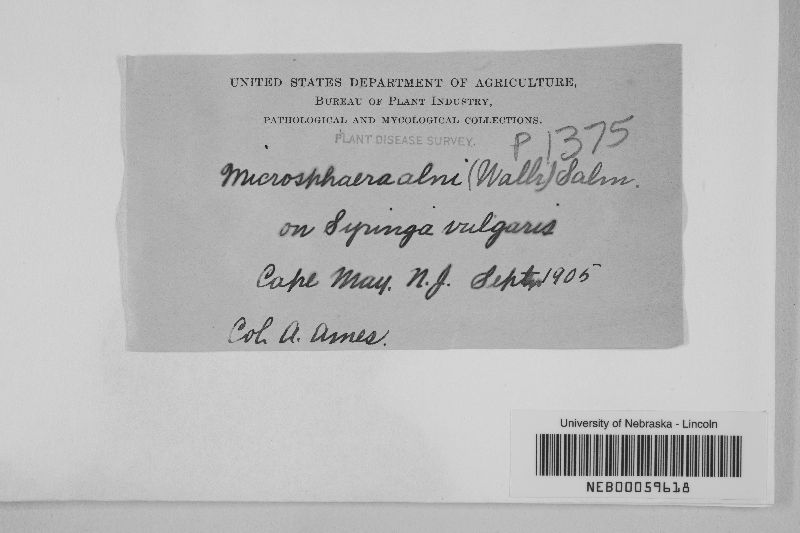 UNITED STATES DEPARTMENT OF AGRICULTURE,
BUREAU OF PLANT INDUSTRY,
PATHOLOGICAL AND MYCOLOGICAL COLLECTIONS.
PLANT DISEASE SURVEY.
P 1375
Microsphaera alni (Wallr) Salm.
on Syringa vulgaris
Cape May. N.J. Sept, 1905
Col. A. Ames.
University of Nebraska - Lincoln
NEB00059618